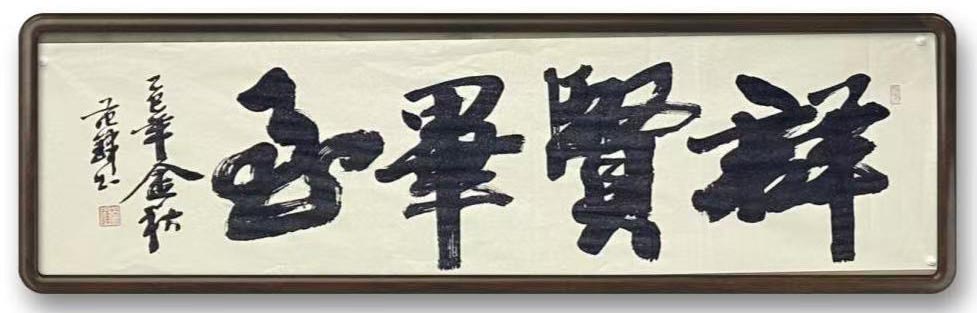 群賢畢至
乙巳年金秋
范